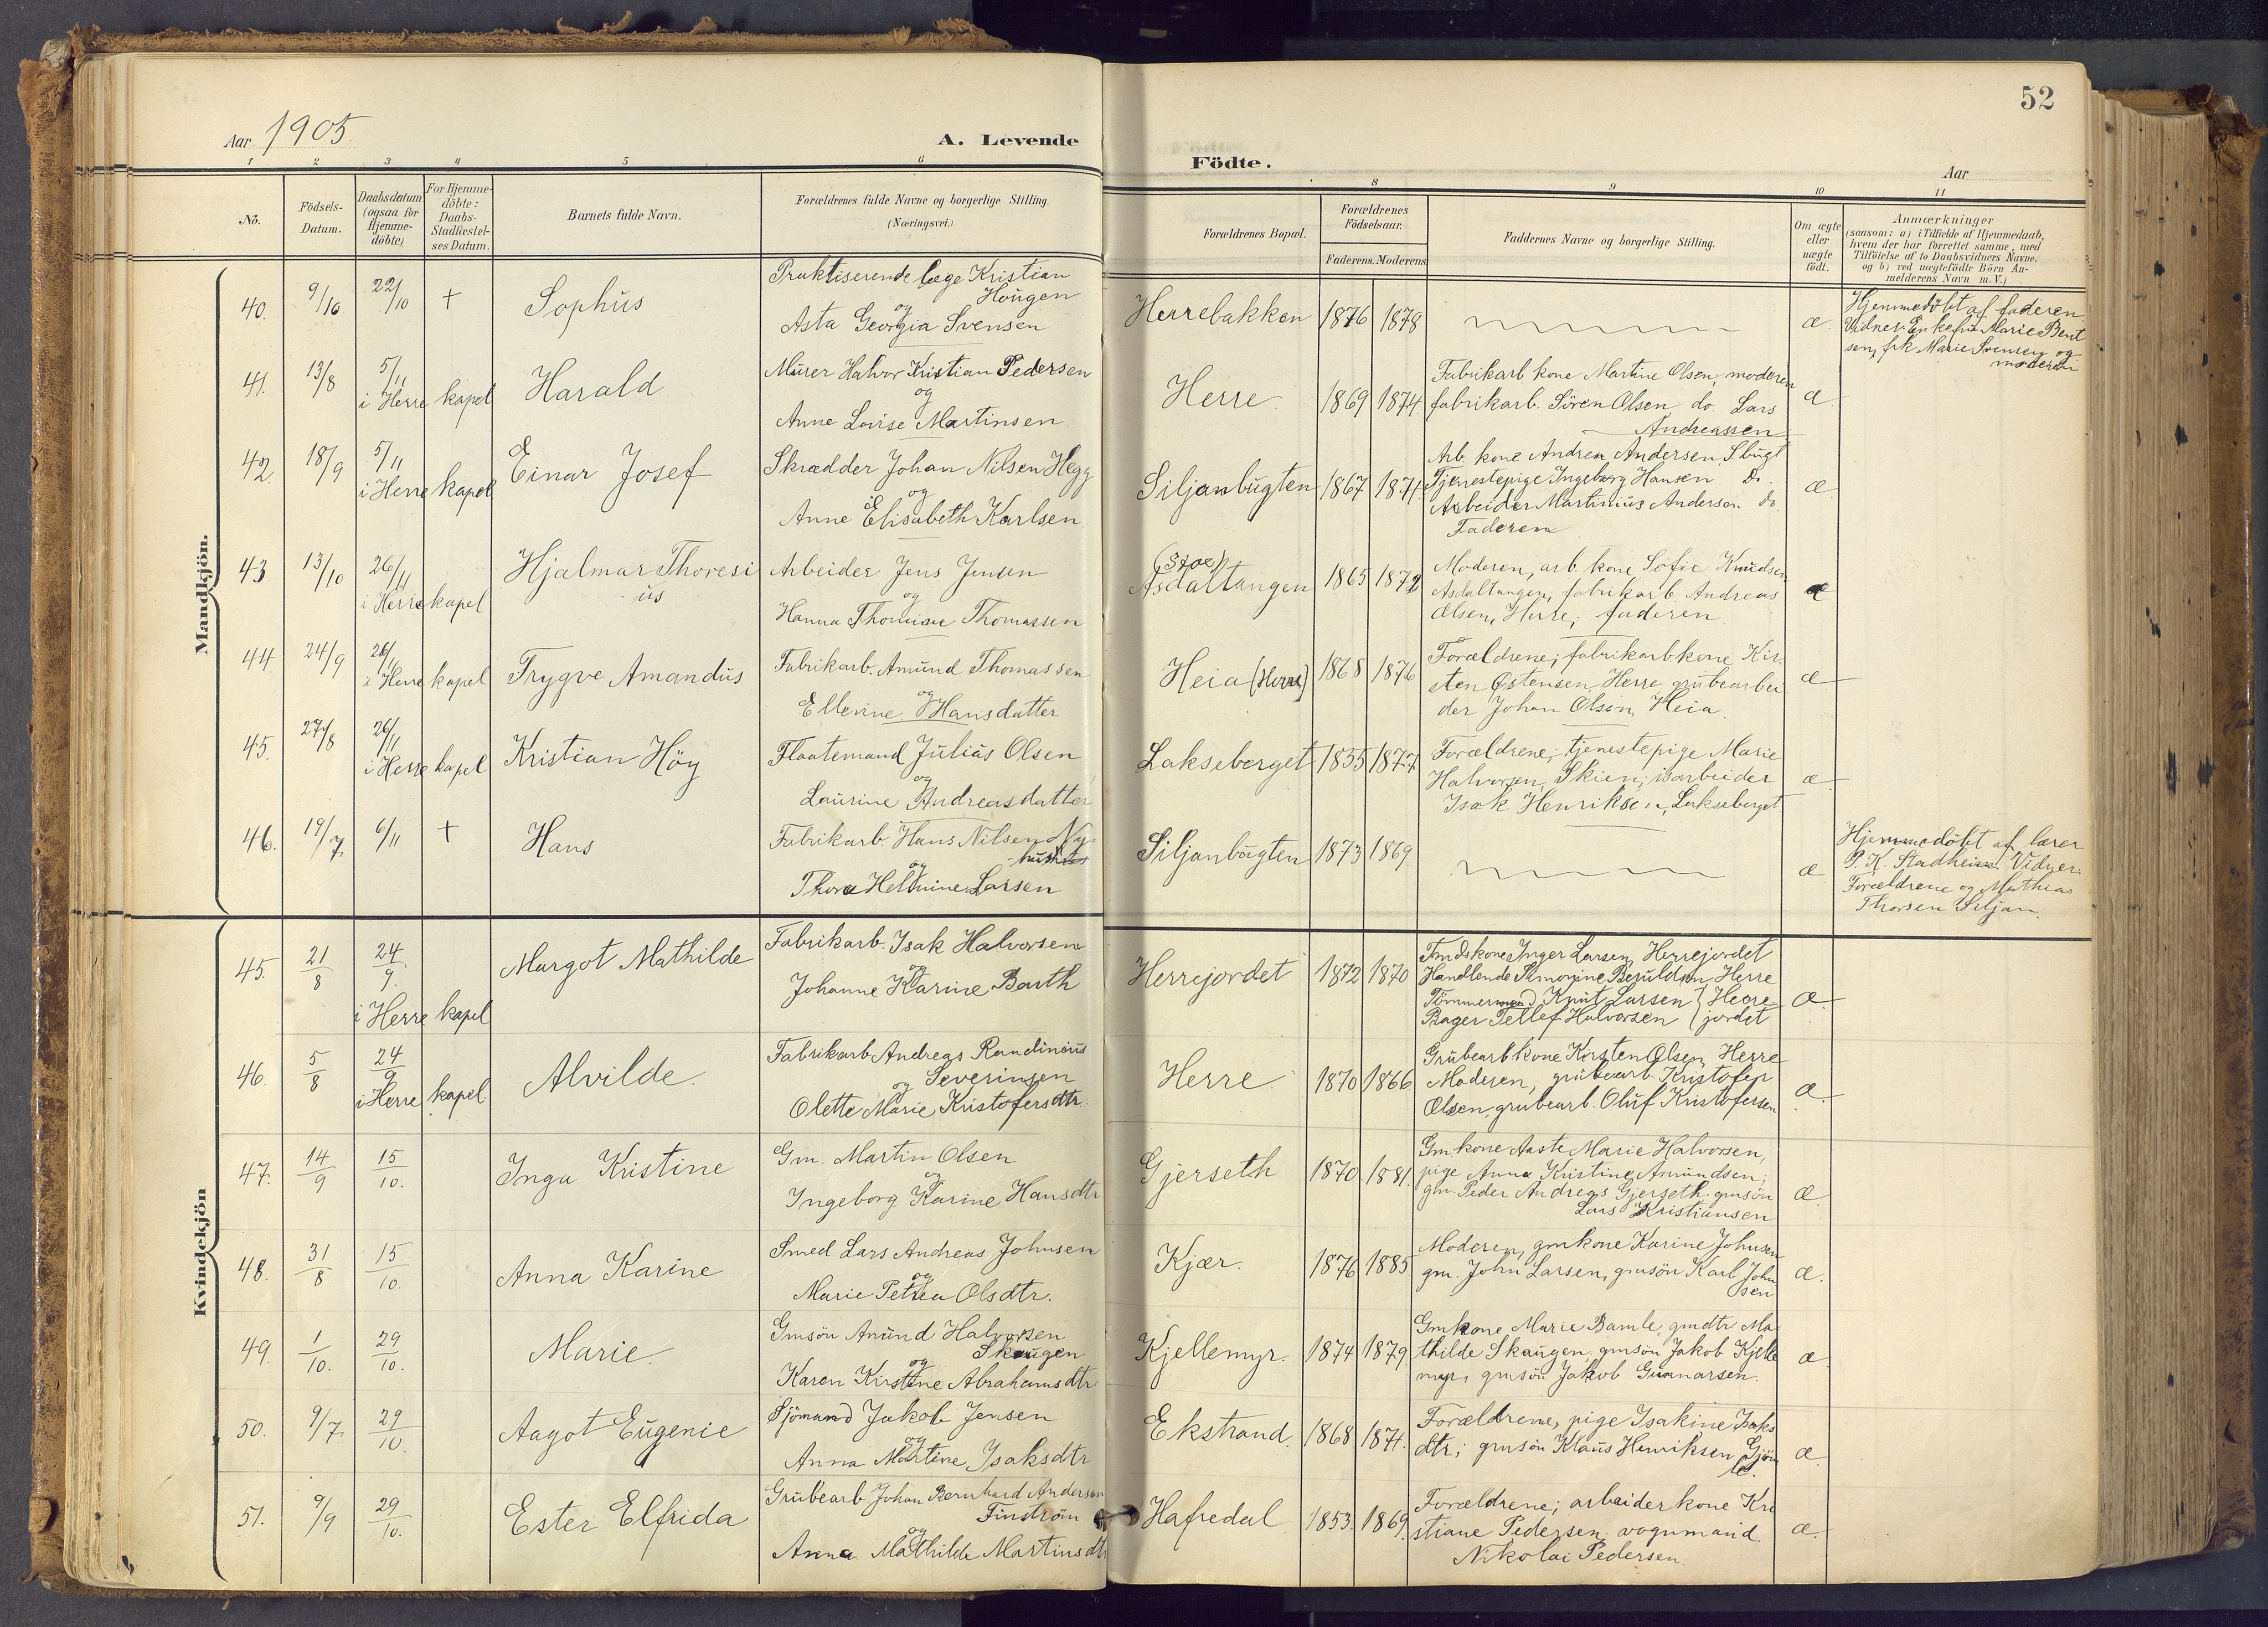 52
Aar 1905.
A. Levende
Födte.
Aar
1 2 3 4 5 6
8 9 10 11
No.
Födsels-
Datum.
Daabsdatum
(ogsaa for
Hjemme-
döbte)
For Hjemme-
döbte:
Daabs-
Stadfæstel-
ses Datum.
Barnets fulde Navn.
Forældrenes fulde Navne og borgerlige Stilling.
(Næringsvei.)
Forældrenes Bopæl.
Forældrenes
Födselsaar.
Faderens. Moderens
Faddernes Navne og borgerlige Stilling.
Om ægte
eller
uægte
födt.
Anmærkninger
(saasom: a) i Tilfælde af Hjemmedaab,
hvem der har forrettet samme, med
Tilföielse af to Daabsvidners Navne.
og b) ved uægtefödte Börn An-
melderens Navn m.V.)
Mandkjön.
40. 9/10 22/10 + Sophus
Praktiserende læge Kristian
Hougen
og
Asta Georgia Svensen
Herrebakken 1876 1878 æ.
Hjemmedöbt af faderen
Vidner: Enkefru Marie Bent
sen, frk Marie Svensen og
moderen
41. 13/8 5/11
i Herre kapel
Harald
Murer Halvor Kristian Pedersen
og
Anne Lovise Martinsen
Herre. 1869 1874.
Fabrikarb kone Martine Olsen, moderen
fabrikarb. Sören Olsen, do. Lars
Andreassen
æ
42. 18/9 5/11
i Herre kapel
Einar Josef
Skrædder Johan Nilsen Hegg
og
Anne Elisabeth Karlsen
Siljanbugten 1867 1871.
Arb. kone Andrea Andersen, S bugt
Tjenestepige Ingeborg Hansen Do.
Arbeider Martinius Andersen do.
Faderen
æ
43. 13/10 26/11
i Herre kapel
Hjalmar Thoresi
us
Arbeider Jens Jensen
og
Hanna Thomine Thomassen
Asdaltangen 1865 1872
Moderen, arb. kone Sofie Knudsen
Asdaltangen, fabrikarb. Andreas
Olsen, Herre; faderen.
æ
44. 24/9 26/11
i Herre kapel
Trygve Amandus
Fabrikarb. Amund Thomassen
og
Ellevine Hansdatter
Heia (Herre) 1868 1876
Forældrene; fabrikarbkone Kir-
sten Östensen, Herre grubearbei
der Johan Olsen, Heia.
æ
45. 27/8 26/11
i Herre kapel
Kristian Höy
Flaatemand Julius Olsen
og
Laurine Andreasdatter
Lakseberget 1855 1877
Forældrene; tjenestepige Marie
Halvorsen, Skien; isarbeider
Isak Henriksen, Lakseberget
æ
46. 19/7. 6/11 + Hans
Fabrikarb. Hans Nilsen Ny-
hus
og
Thora Helmine Larsen
Siljanbugten 1873 1869. æ
Hjemmedöbt af lærer
P. K. Stadheim. Vidner:
Forældrene og Mathias
Thorsen Siljan.
Kvindekjön
45. 21/8 24/9.
i Herre kapel
Margot Mathilde
Fabrikarb. Isak Halvorsen
og
Johanne Karine Barth
Herrejordet 1872 1870
Tmdskone Inger Larsen Herrejordet
Handlende Simonine Bejuldsen, Herre
Tömmermand Knut Larsen } Herre
Bager Tellef Halvorsen } jordet
æ
46. 5/8 24/9
i Herre kapel
Alvilde.
Fabrikarb Andreas Randinius
Severinsen
og
Olette Marie Kristofersdtr.
Herre 1870 1866
Grubearb kone Kirsten Olsen, Herre
Moderen, grubearb. Kristofer
Olsen, grubearb. Oluf Kristofersen
æ.
47. 14/9 15/10.
Inga Kristine
Gm. Martin Olsen
og
Ingeborg Karine Hansdtr
Gjerseth 1870 1881.
Gm.kone Aaste Marie Halvorsen,
pige Anna Kristine Amundsen;
gm. Peder Andreas Gjerseth. gmsön
Lars Kristiansen
æ
48. 31/8 15/10.
Anna Karine
Smed Lars Andreas Johnsen
og
Marie Petrea Olsdtr.
Kjær. 1876 1885
Moderen, gmkone Karine Johnsen
gm. John Larsen, gmsön Karl John
sen
æ.
49. 1/10. 29/10.
Marie.
Gmsön Anund Halvorsen
Skaugen
og
Karen Kirstine Abrahamsdtr
Kjellemyr. 1874 1879
Gmkone Marie Bamle, gmdtr Ma-
thilde Skaugen. gmsön Jakob Kjelle
myr, gmsön Jakob Gunnarsen.
æ
50. 9/7. 29/10.
Aagot Eugenie
Sjömand Jakob Jensen
og
Anna Martine Isaksdtr
Ekstrand. 1868 1871.
Forældrene, pige Isakine Isaks
dtr; gmsön Klaus Henriksen Gjöm
le.
æ
51. 9/9 29/10.
Ester Elfrida
Grubearb Johan Bernhard Andersen
Finström
og
Anna Mathilde Martinsdtr
Hafredal 1853. 1869.
Forældrene; arbeiderkone Kri
stiane Pedersen. vognmand
Nikolai Pedersen.
æ.